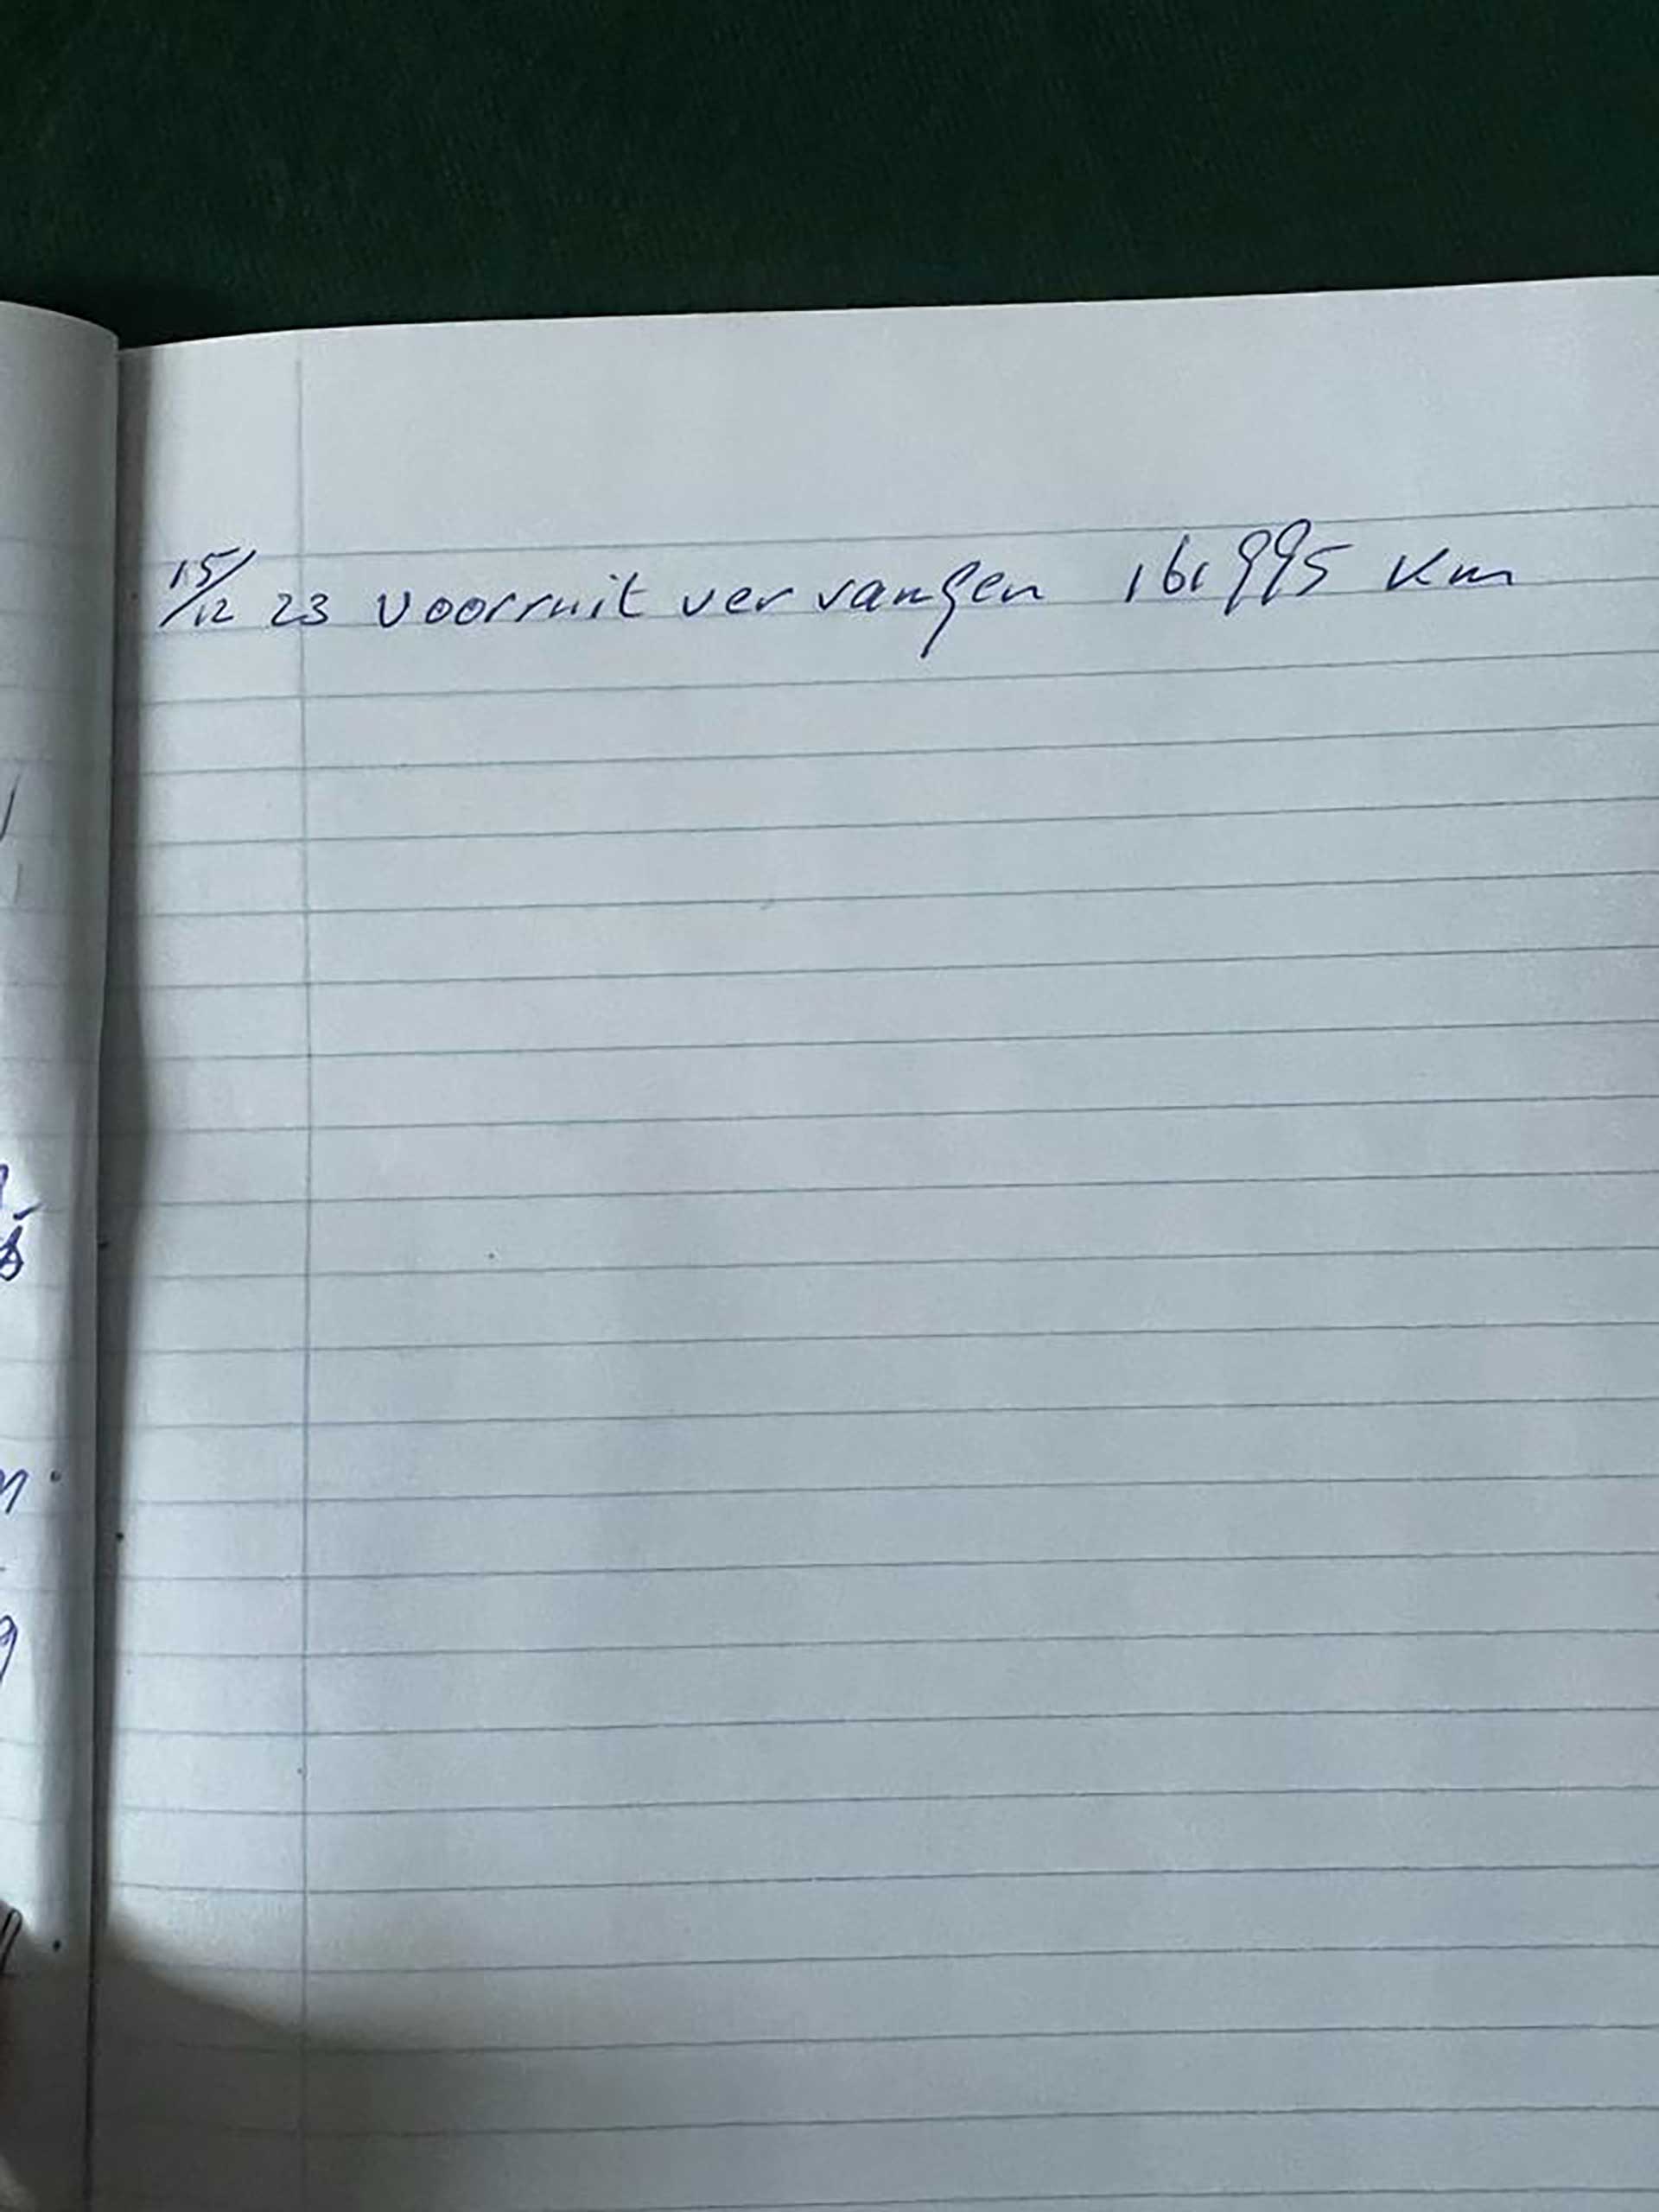 15/12 23 voorruit vervangen 161995 km